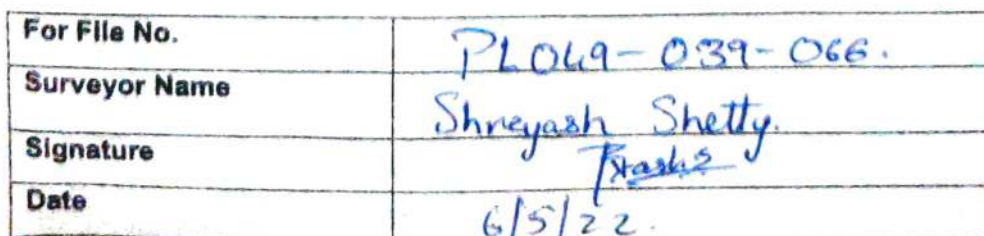 For File No. PL049-039-066.
Surveyor Name Shreyash Shetty.
Signature
Date 6/5/22.